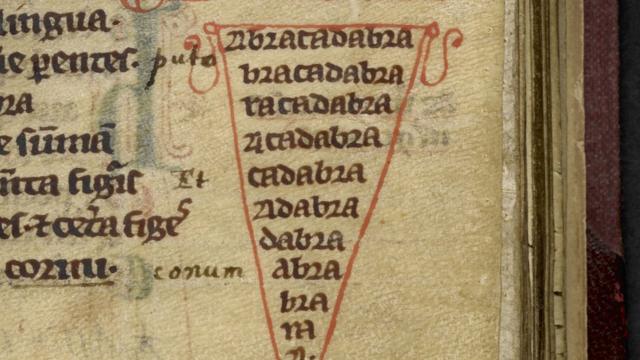 lingua.
ie pentes. puto
bra
e sūmā
ñta figis Et
es. ⁊ cet̃a figes
cornu. conum
Abracadabra
bracadabra
racadabra
Acadabra
cadabra
Adabra
dabra
Abra
bra
ra
A.